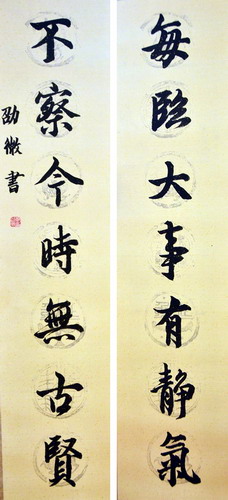 每臨大事有靜氣
不察今時無古賢
劭微書